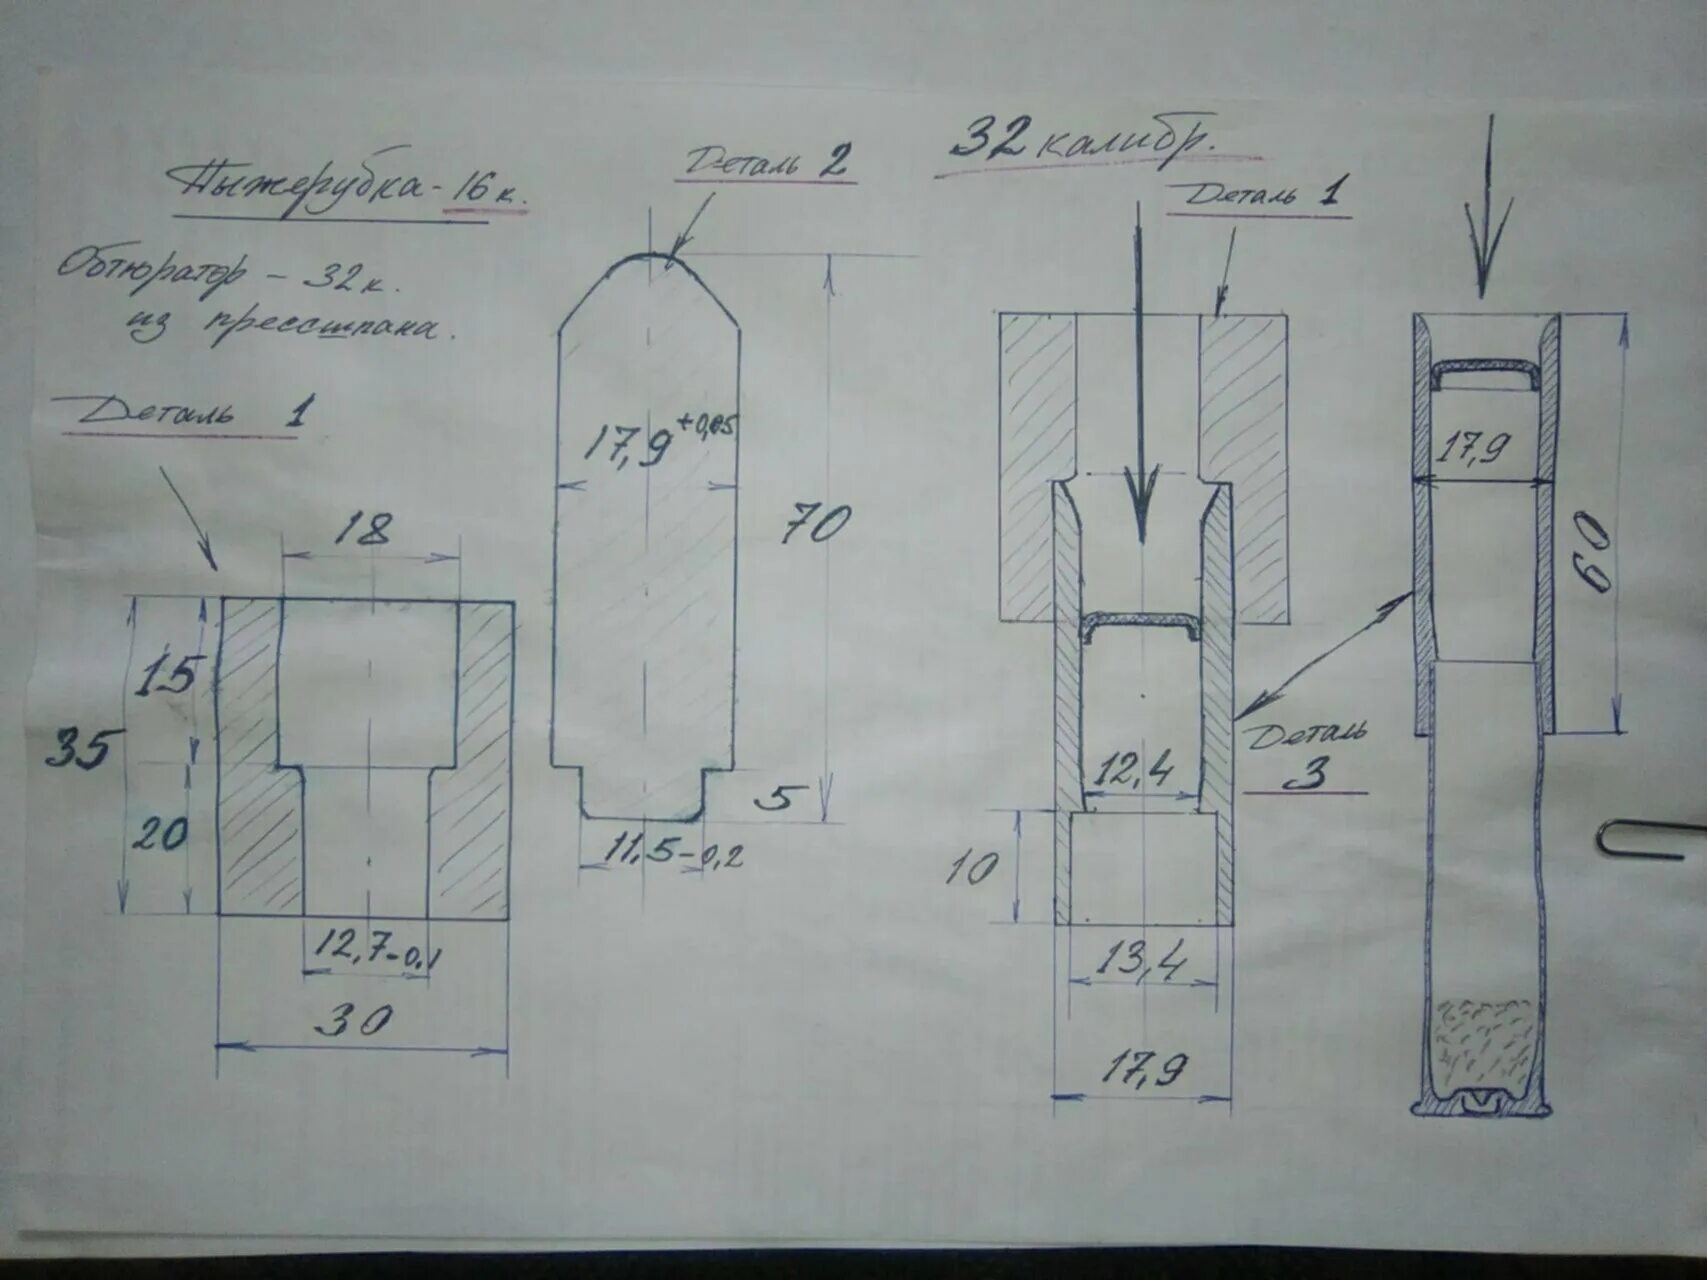 Пыжерубка - 16 к.
Обтюратор - 32 к.
из прессшпана.
Деталь 1
18
15
35
20
12,7-0,1
30
Деталь 2
17,9+0,05
70
5
11,5-0,2
32 калибр.
Деталь 1
12,4
10
13,4
17,9
Деталь
3
17,9
60